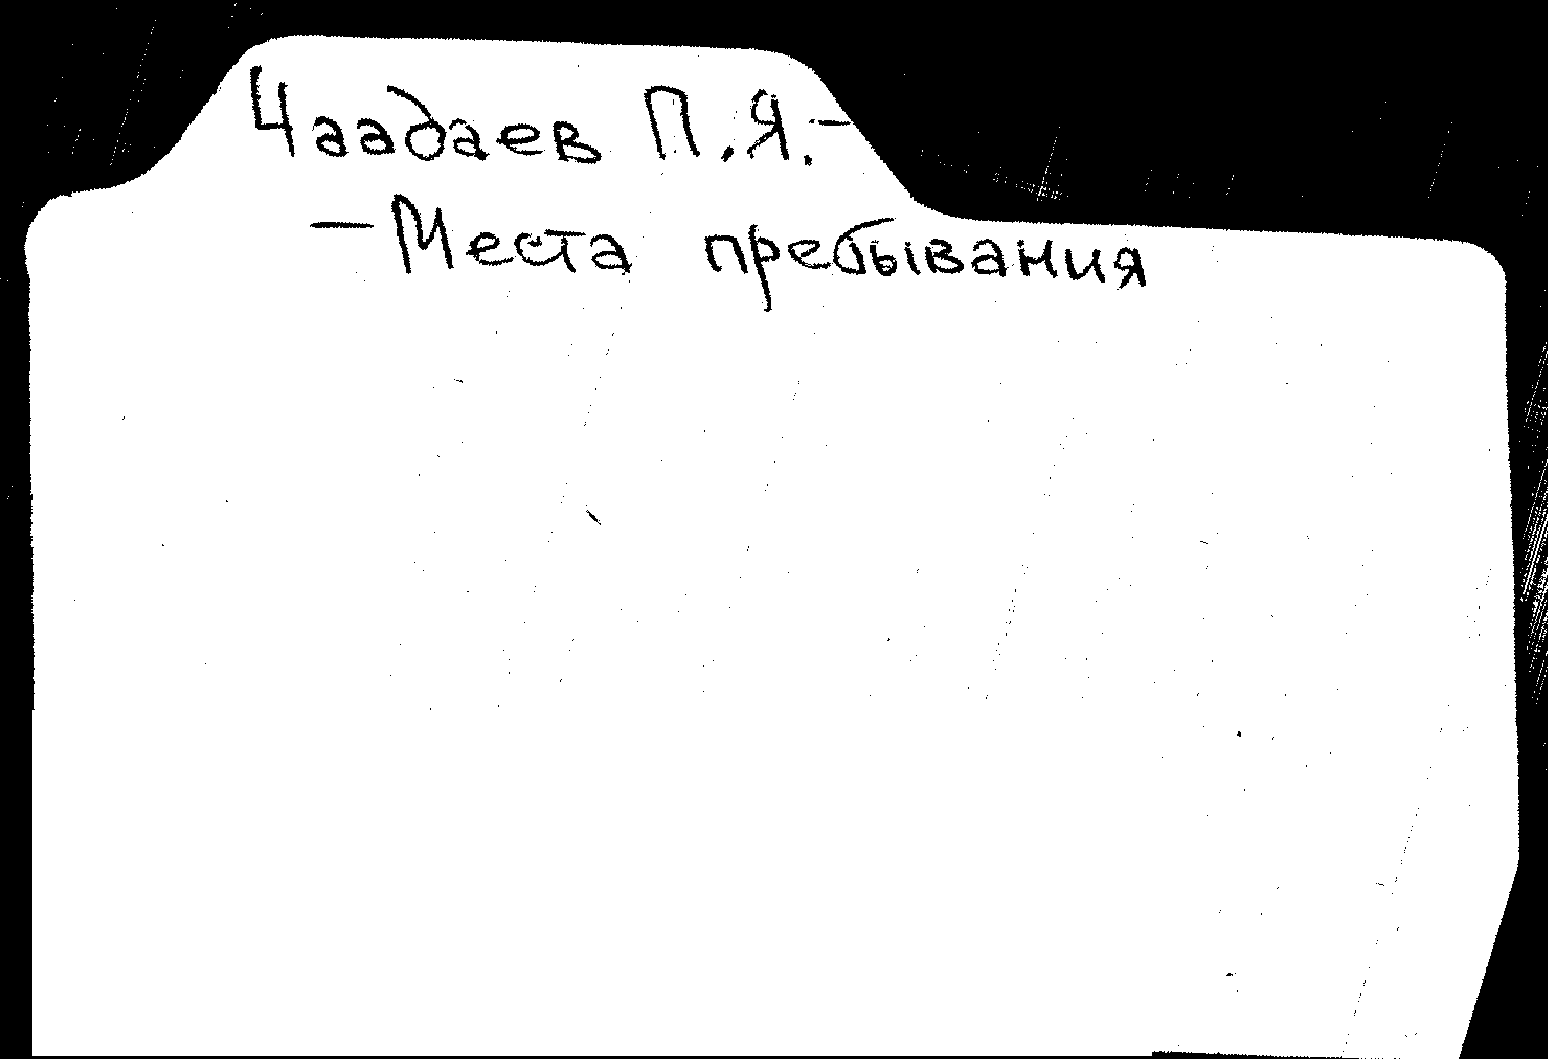 Чаадаев П.Я.–
– Места пребывания